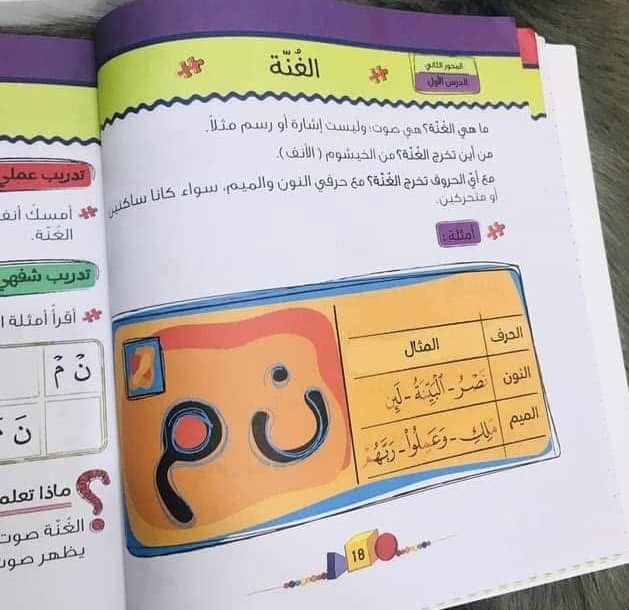 المحور الثاني
الدرس الأول
الغُنّة
ما هي الغُنّة؟ هي صوت؛ وليست إشارة أو رسم مثلاً.
من أين تخرج الغُنّة؟ من الخيشوم (الأنف).
مع أيّ الحروف تخرج الغُنّة؟ مع حرفي النون والميم، سواء كانا ساكنين
أو متحركين.
أمثلة:
الحرف المثال
النون نَصْرُ - ٱلْبَيِّنَةُ - لَمِن
الميم مَلِكِ - وَعَمِلُواْ - رَبَّهُمْ
ن م
18
تدريب عملي
أمسك
الغُنّة.
تدريب شفهي
اقرأ أمثلة
نْ مْ
نَ
ماذا تعلم
الغُنّة صوت
يظهر صوت